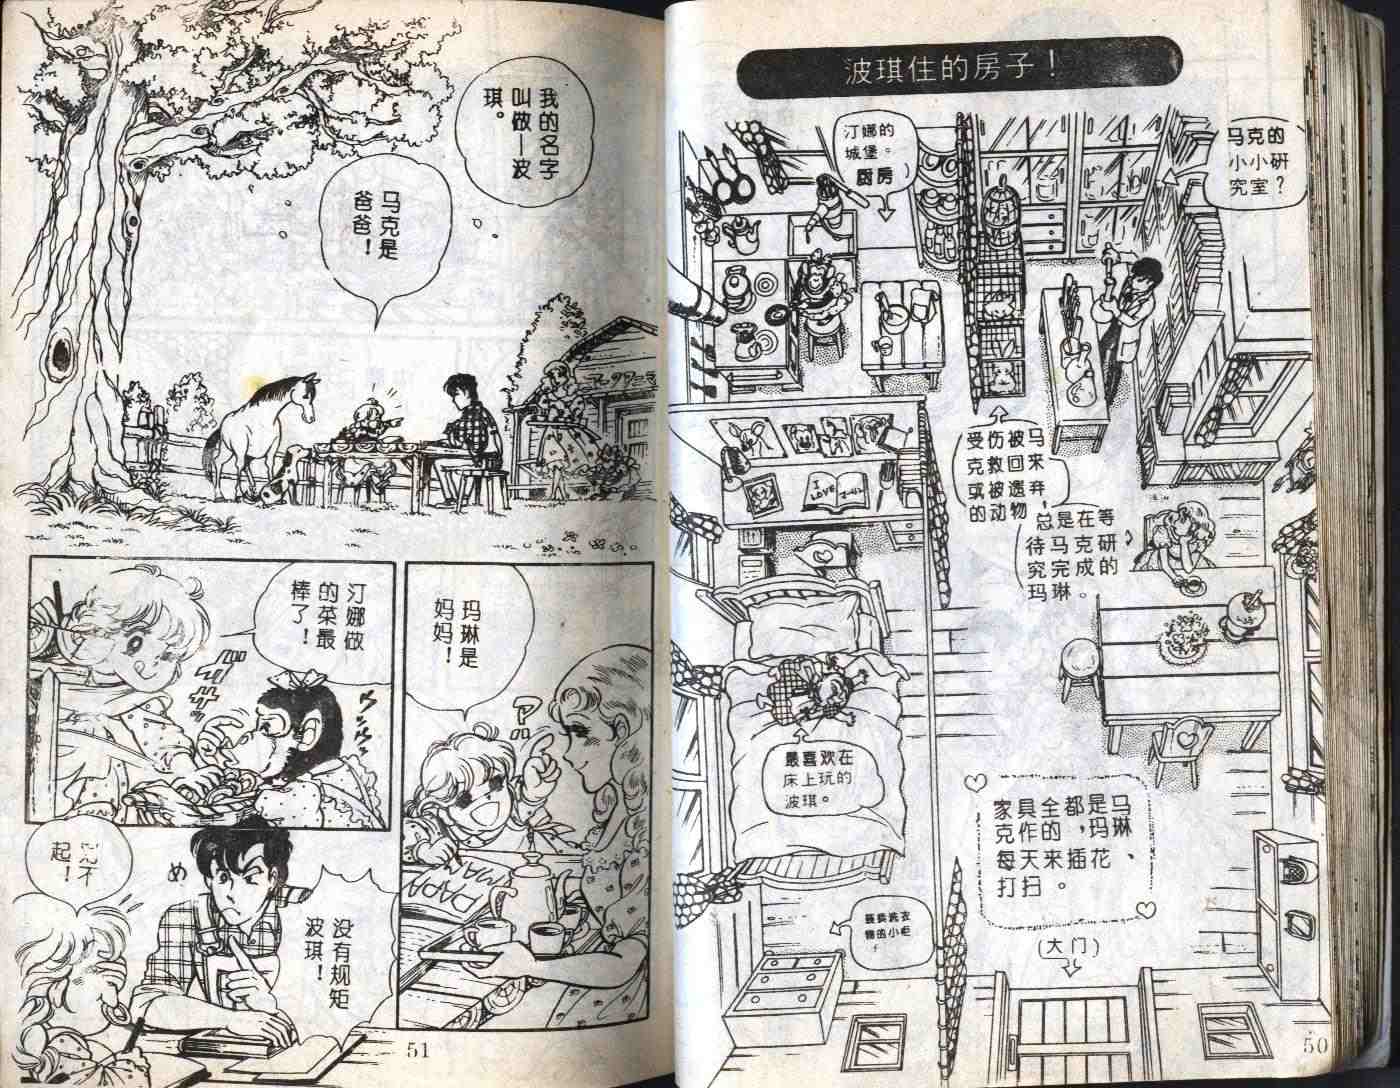 波琪住的房子！
马克的
小小研
究室？
汀娜的
城堡。
厨房
受伤被马
克救回来
或被遗弃，
的动物
总是在等
待马克研
究完成的
玛琳。
最喜欢在
床上玩的
波琪。
家具全都是马
克作的，玛琳
每天来插花、
打扫。
（大门）
I
LOVE
50
我的名字
叫做—波
琪。
马克是
爸爸！
汀娜做
的菜最
棒了！
ガザガサッ
玛琳是
妈妈！
PAPA
MA
没有规矩
波琪！
め
不
起！
51